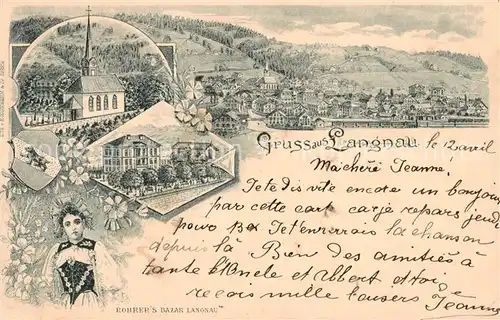 Gruss aus Langnau.
le 12 avril
Ma chère Jeanne!
Je te dis vite encore un bonjour
par cette cart car je repars jeudi
pour Je t'enverrais la chanson
depuis là Bien des amitiés à
tante l'Oncle et Albert et toi
reçois mille baisers Jeanne
ROHRER'S BAZAR LANGNAU